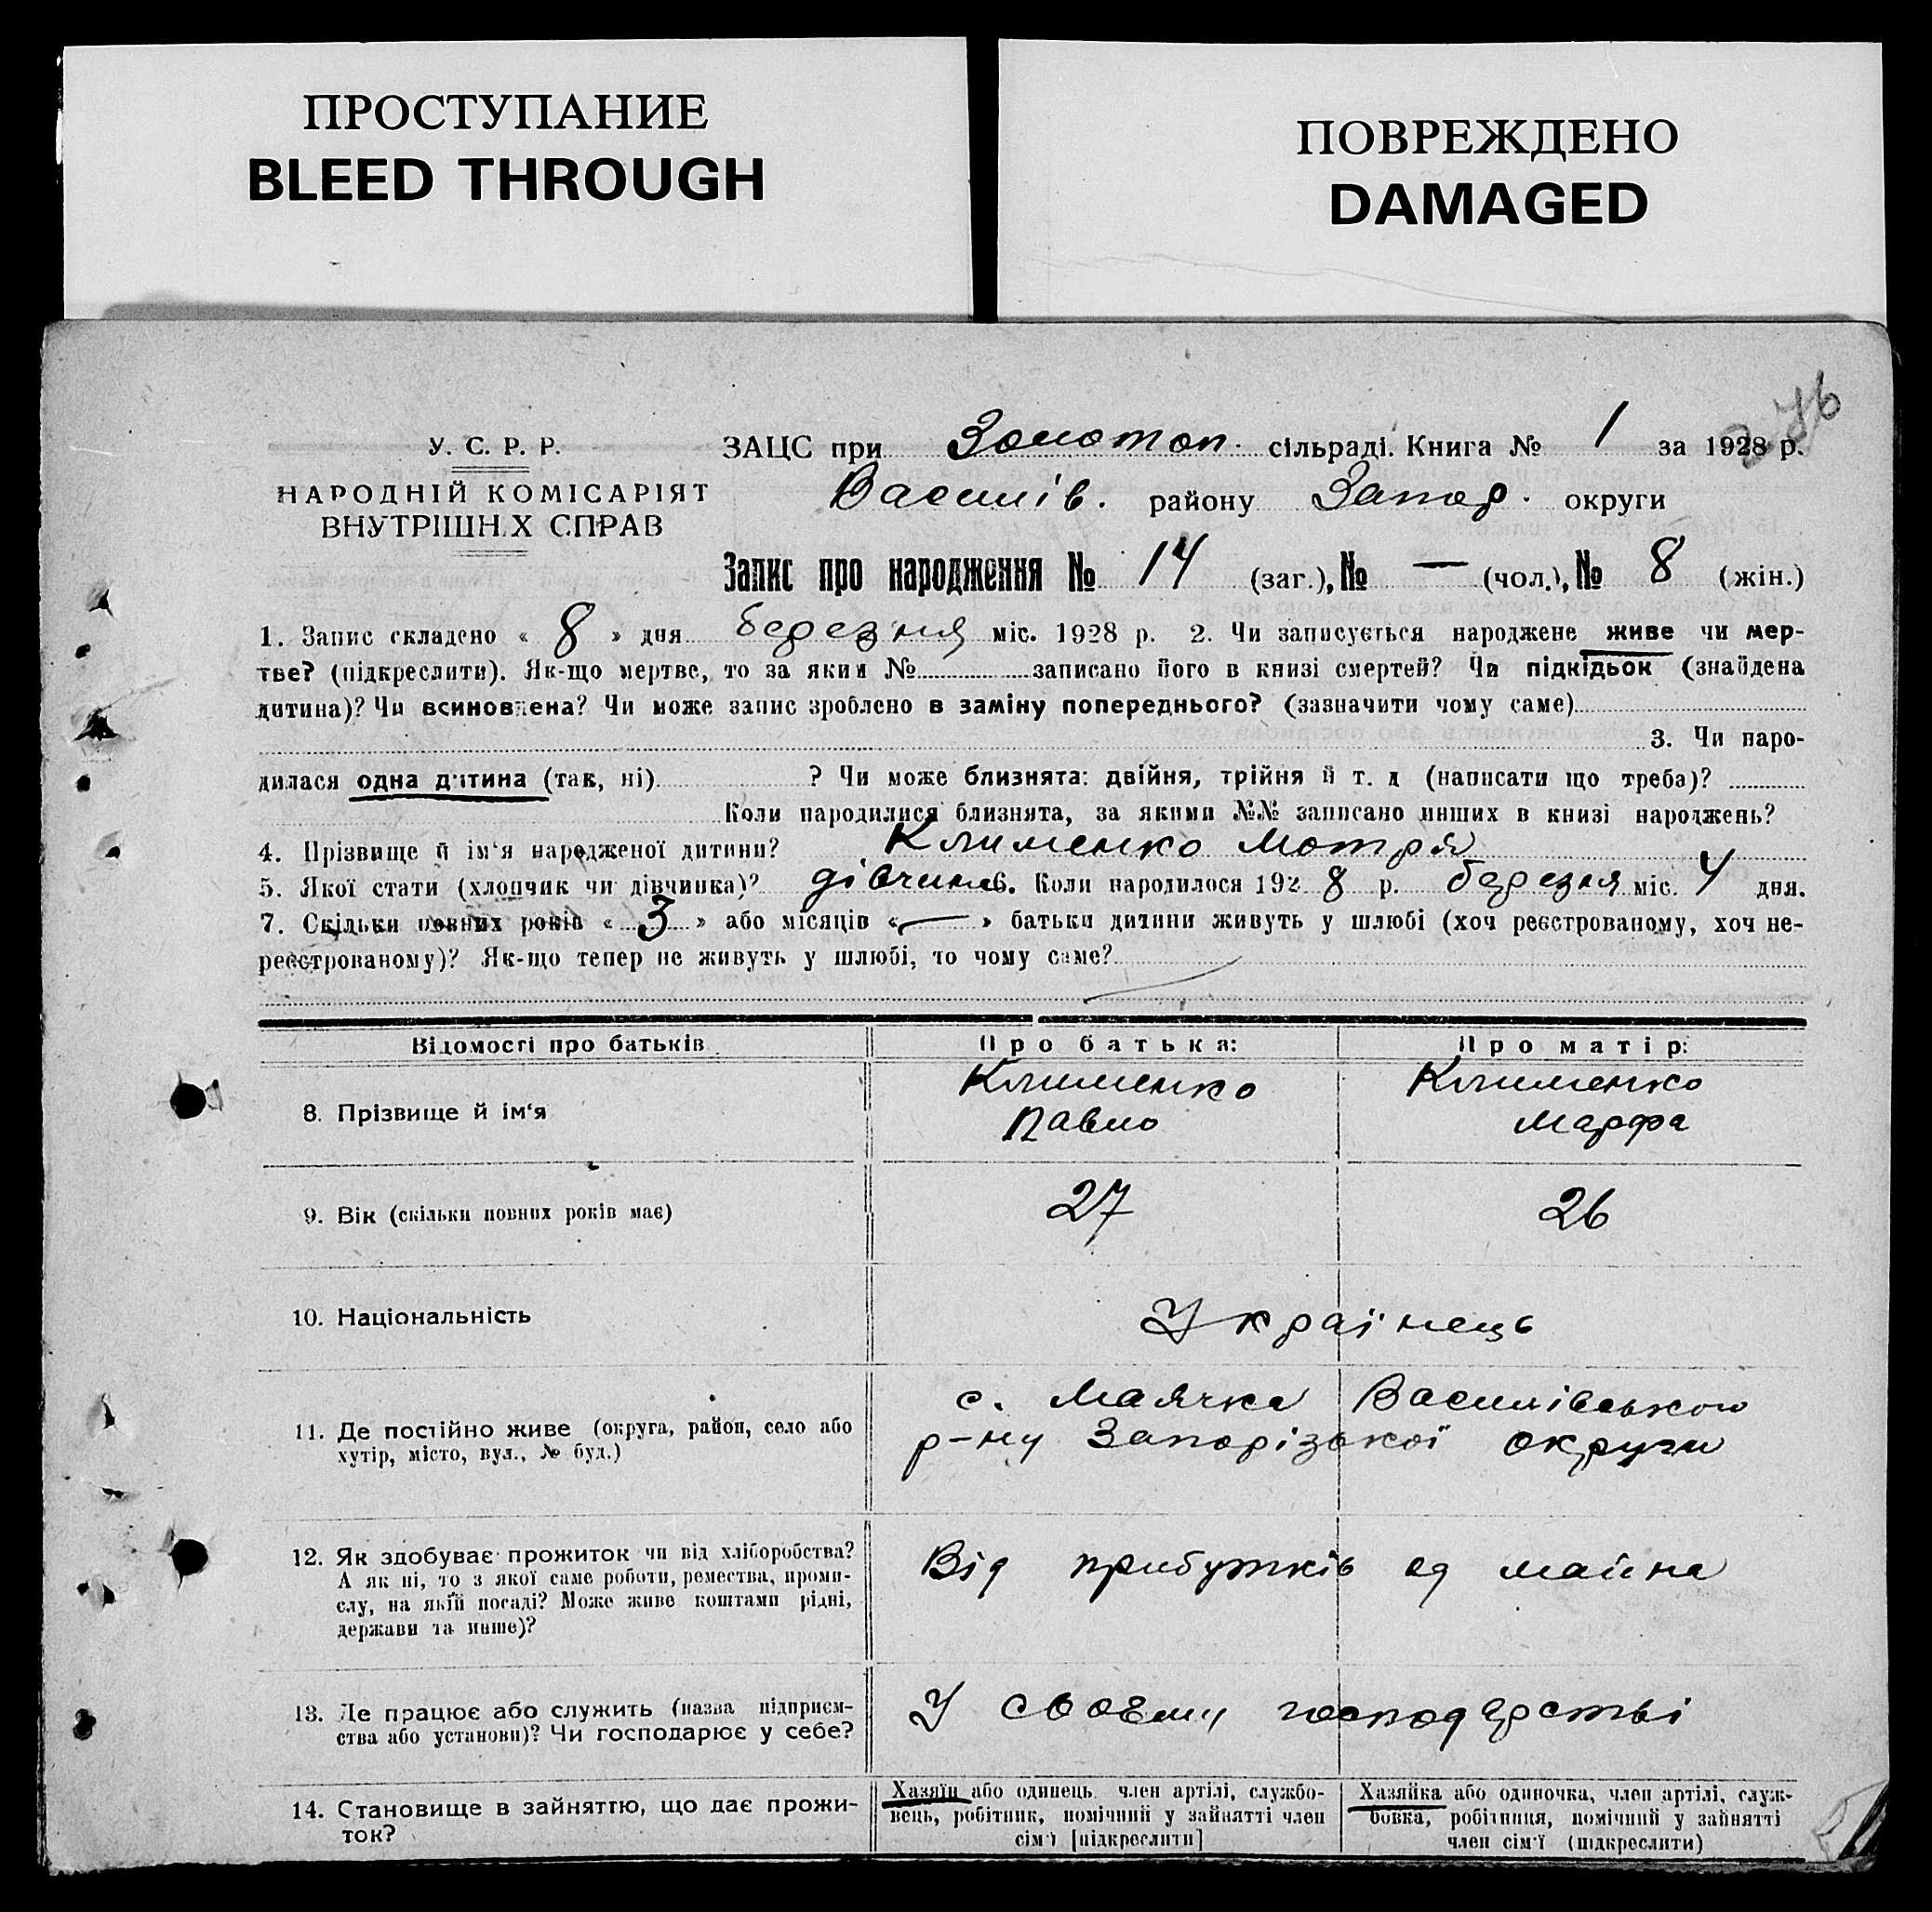 ПРОСТУПАНИЕ
BLEED THROUGH
ПОВРЕЖДЕНО
DAMAGED
У. С. Р. Р.
НАРОДНІЙ КОМІСАРІЯТ
ВНУТРІШН.Х СПРАВ
ЗАЦС при Золотоп. сільраді. Книга № 1 за 1928 р.
Василів. району Запор. округи
Запис про народження № 14 (заг.), № — (чол.), № 8 (жін.)
1. Запис складено « 8 » дня березня міс. 1928 р. 2. Чи записується народжене живе чи мер-
тве? (підкреслити). Як-що мертве, то за яким № записано його в книзі смертей? Чи підкідьок (знайдена
дитина)? Чи всиновлена? Чи може запис зроблено в заміну попереднього? (зазначити чому саме)
3. Чи наро-
дилася одна дитина (так, ні) ? Чи може близнята: двійня, трійня й т. д (написати що треба)?
Коли народилися близнята, за якими №№ записано инших в книзі народжень?
4. Прізвище й ім‘я народженої дитини? Клименко Мотря
5. Якої стати (хлопчик чи дівчинка)? дівчина 6. Коли народилося 192 8 р. березня міс. 4 дня.
7. Скільки повних років « 3 » або місяців « — » батьки дитини живуть у шлюбі (хоч реєстрованому, хоч не-
реєстрованому)? Як-що тепер не живуть у шлюбі, то чому саме?
Відомості про батьків Про батька: Про матір:
8. Прізвище й ім‘я Клименко Павло Клименко Марфа
9. Вік (скільки повних років має) 27 26
10. Національність Українець
11. Де постійно живе (округа, район, село або
хутір, місто, вул., № буд.)
с. Маячка Василівського
р-ну Запорізької округи
12. Як здобуває прожиток чи від хліборобства?
А як ні, то з якої саме роботи, ремества, проми-
слу, на якій посаді? Може живе коштами рідні,
держави та инше)?
Від прибутків од майна
13. Де працює або служить (назва підприєм-
ства або установи)? Чи господарює у себе?
У своєму господарстві
14. Становище в зайняттю, що дає прожи-
ток?
Хазяїн або одинець член артілі, службо-
вець, робітник, помічний у зайнятті член
сім‘ї [підкреслити]
Хазяйка або одиночка, член артілі, служ-
бовка, робітниця, помічний у зайнятті
член сім‘ї (підкреслити)